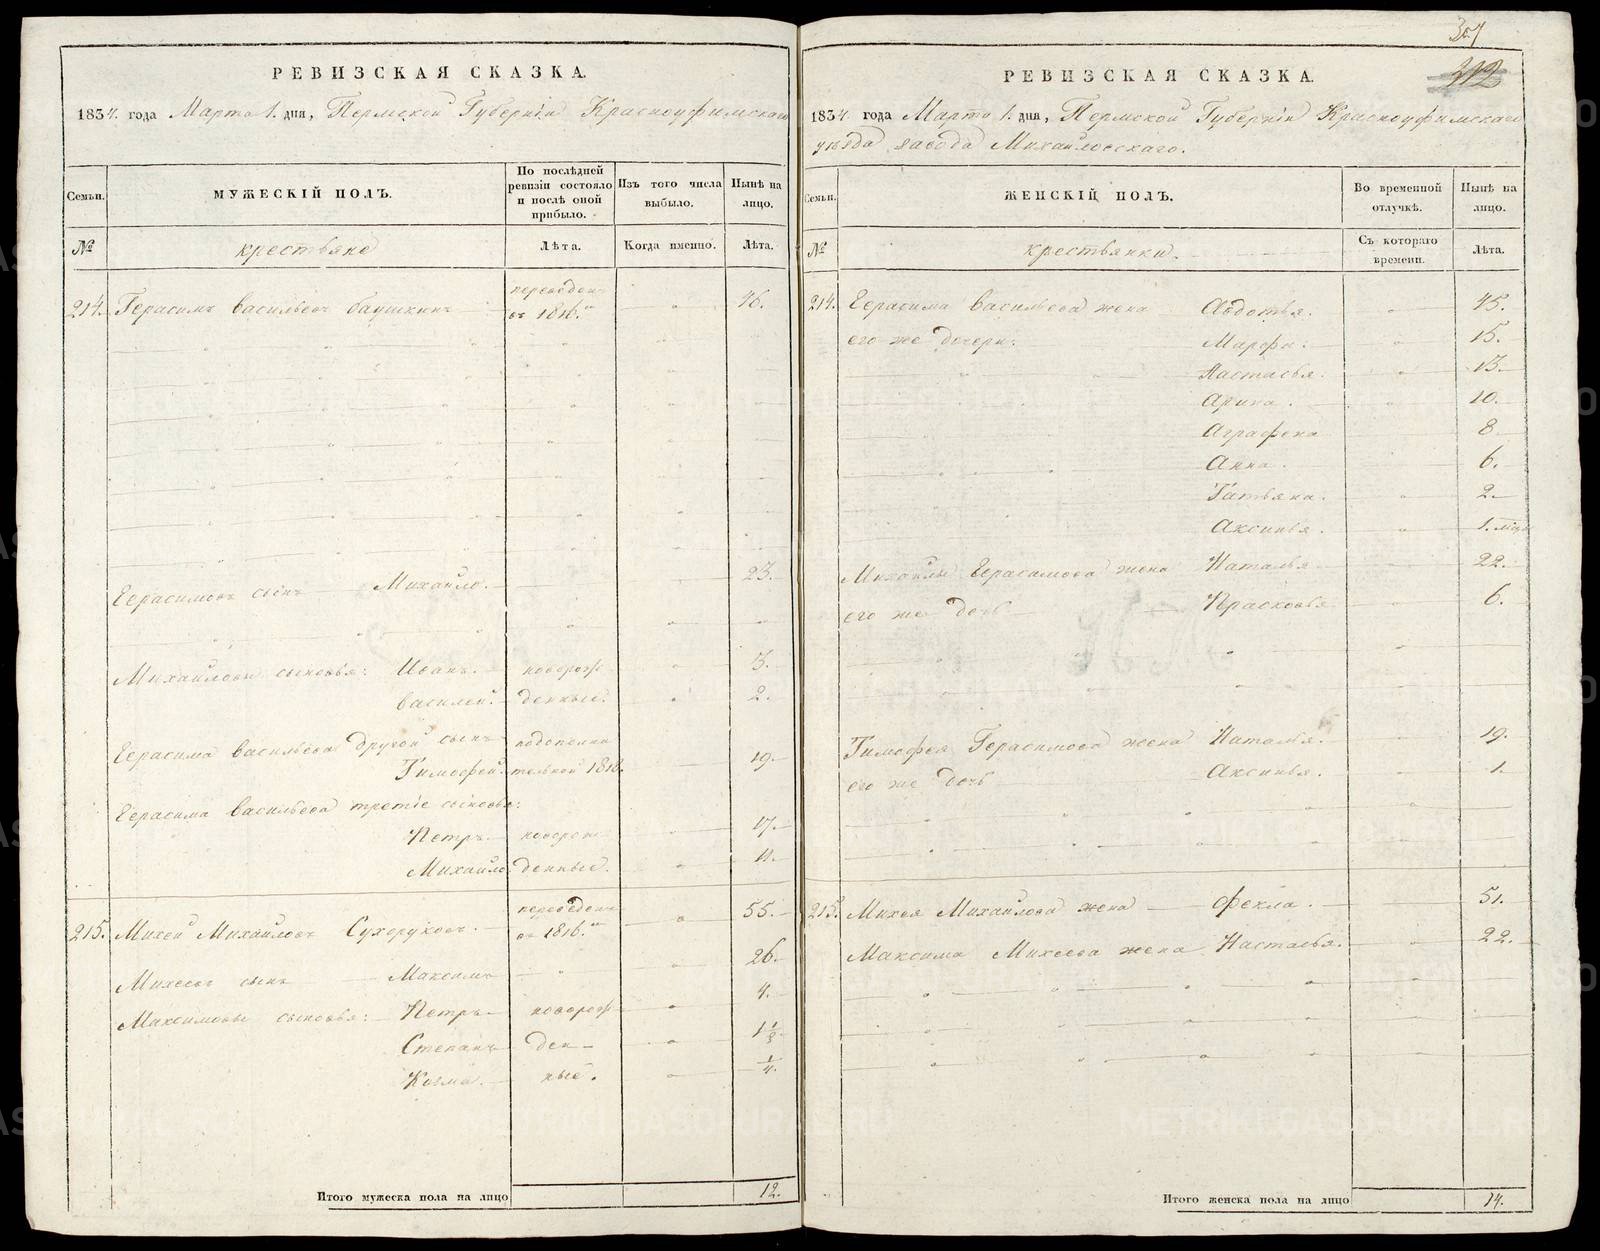 РЕВИЗСКАЯ СКАЗКА.
1834. года Марта 1. дня, Пермской Губернiи Красноуфимскаго
Семьи.
МУЖЕСКIЙ ПОЛЪ.
По послѣдней ревизiи состояло и послѣ оной прибыло.
Изъ того числа выбыло.
Нынѣ на лицо.
№
крестьяне
Лѣта.
Когда именно.
Лѣта.
214. Герасимъ Васильевъ баушкинъ переведенъ въ 1816.мъ 46.
Герасимовъ сынъ Михайло. 23.
Михайловы сыновья: Иванъ. новорож 3.
Василей. денные. 2.
Герасима Васильева другой сынъ
Тимофей. 1818. 19.
Герасима Васильева третiе сыновья:
Петръ. новорож 17.
Михайло денные. 11.
215. Михей Михайловъ Сухоруковъ. переведенъ въ 1816.мъ 55.
Михеевъ сынъ Максимъ 26.
Максимовы сыновья: Петръ новорож 4.
Степанъ ден 1 1/2
Козма. ные. 1/4.
Итого мужеска пола на лицо 12.
307
212
РЕВИЗСКАЯ СКАЗКА.
1834 года Марта 1. дня, Пермской Губернiи Красноуфимскаго
уѣзда завода Михайловскаго.
Семьи.
ЖЕНСКIЙ ПОЛЪ.
Во временной отлучкѣ.
Нынѣ на лицо.
№
крестьянки.
Съ котораго времени.
Лѣта.
214. Герасима Васильева жена Авдотья. 45.
его же дочери: Марфа. 15.
Настасья. 13.
Арина. 10.
Аграфена 8.
Анна. 6.
Татьяна. 2.
Аксинья. 1. мѣць
Михайлы Герасимова жена Наталья 22.
его же дочь Прасковья 6.
Тимофея Герасимова жена Наталья. 19.
его же дочь Аксинья. 1.
215. Михея Михайлова жена Фекла. 51.
Максима Михеева жена Настасья. 22.
Итого женска пола на лицо 14.
METRIKI.GASO-URAL.RU